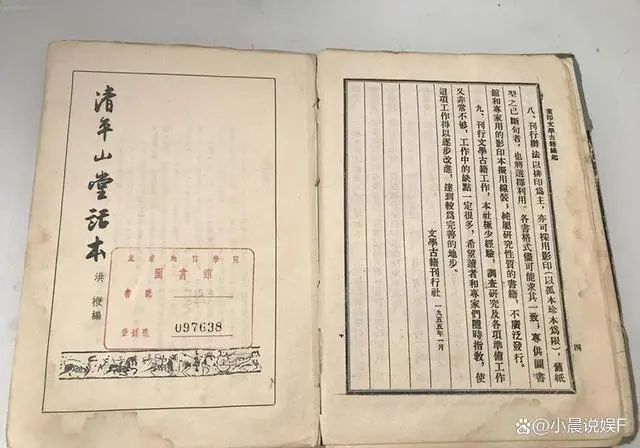 重印文學古籍緣起
四
八、刊行辦法以排印爲主，亦可採用影印（以孤本珍本爲限），舊紙
型之已斷句者，也將選擇利用。各書格式儘可能求其一致；專供圖書
館和專家用的影印本擬用線裝，純屬研究性質的書籍，不廣泛發行。
九、刊行文學古籍工作，本社極少經驗，調查研究及各項準備工作
又非常不够，工作中的缺點一定很多，希望讀者和專家們隨時指教，使
這項工作得以逐步改進，達到較爲完善的地步。
文學古籍刊行社 一九五五年一月
清平山堂話本
洪楩編
北京地質學院
圖書館
書號
登錄號 097638
@小晨说娱F